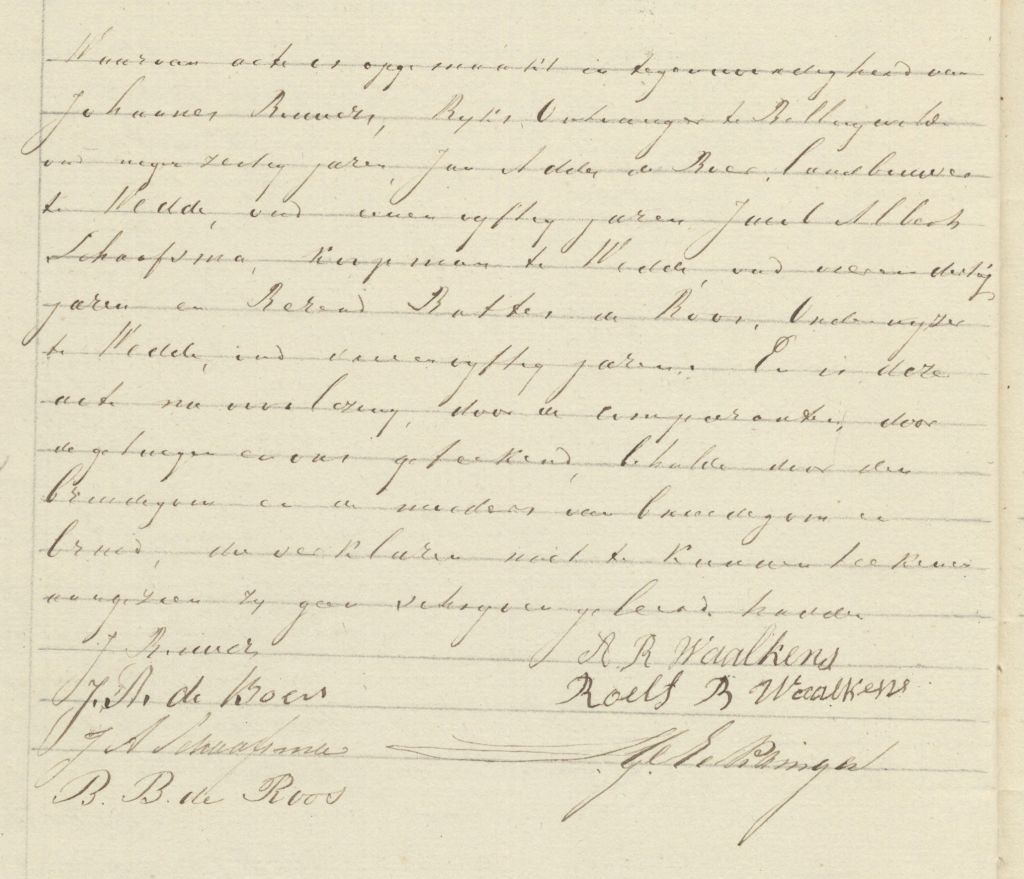 Waarvan acte is opgemaakt in tegenwoordigheid van
Johannes Brouwers, Rijks Ontvanger te Bellingwolde
oud negen zestig jaren, Jan Addes de Boer, landbouwer
te Wedde, oud eenen vijftig jaren Jacob Alberts
Schaafsma, koopman te Wedde, oud vier en dertig
jaren en Berend Battes de Roos, Onderwijzer
te Wedde, oud drie en vijftig jaren. En is deze
acte na voorlezing, door de comparanten, door
de getuigen en ons geteekend, behalve door den
bruidegom en de moeders van bruidegom en
bruid, die verklaren niet te kunnen teekenen
aangezien zij geen schrijven geleerd hadden
J Brouwers A R Waalkens
J. A. de Boer Roelf R Waalkens
J A Schaafsma
B. B. de Roos